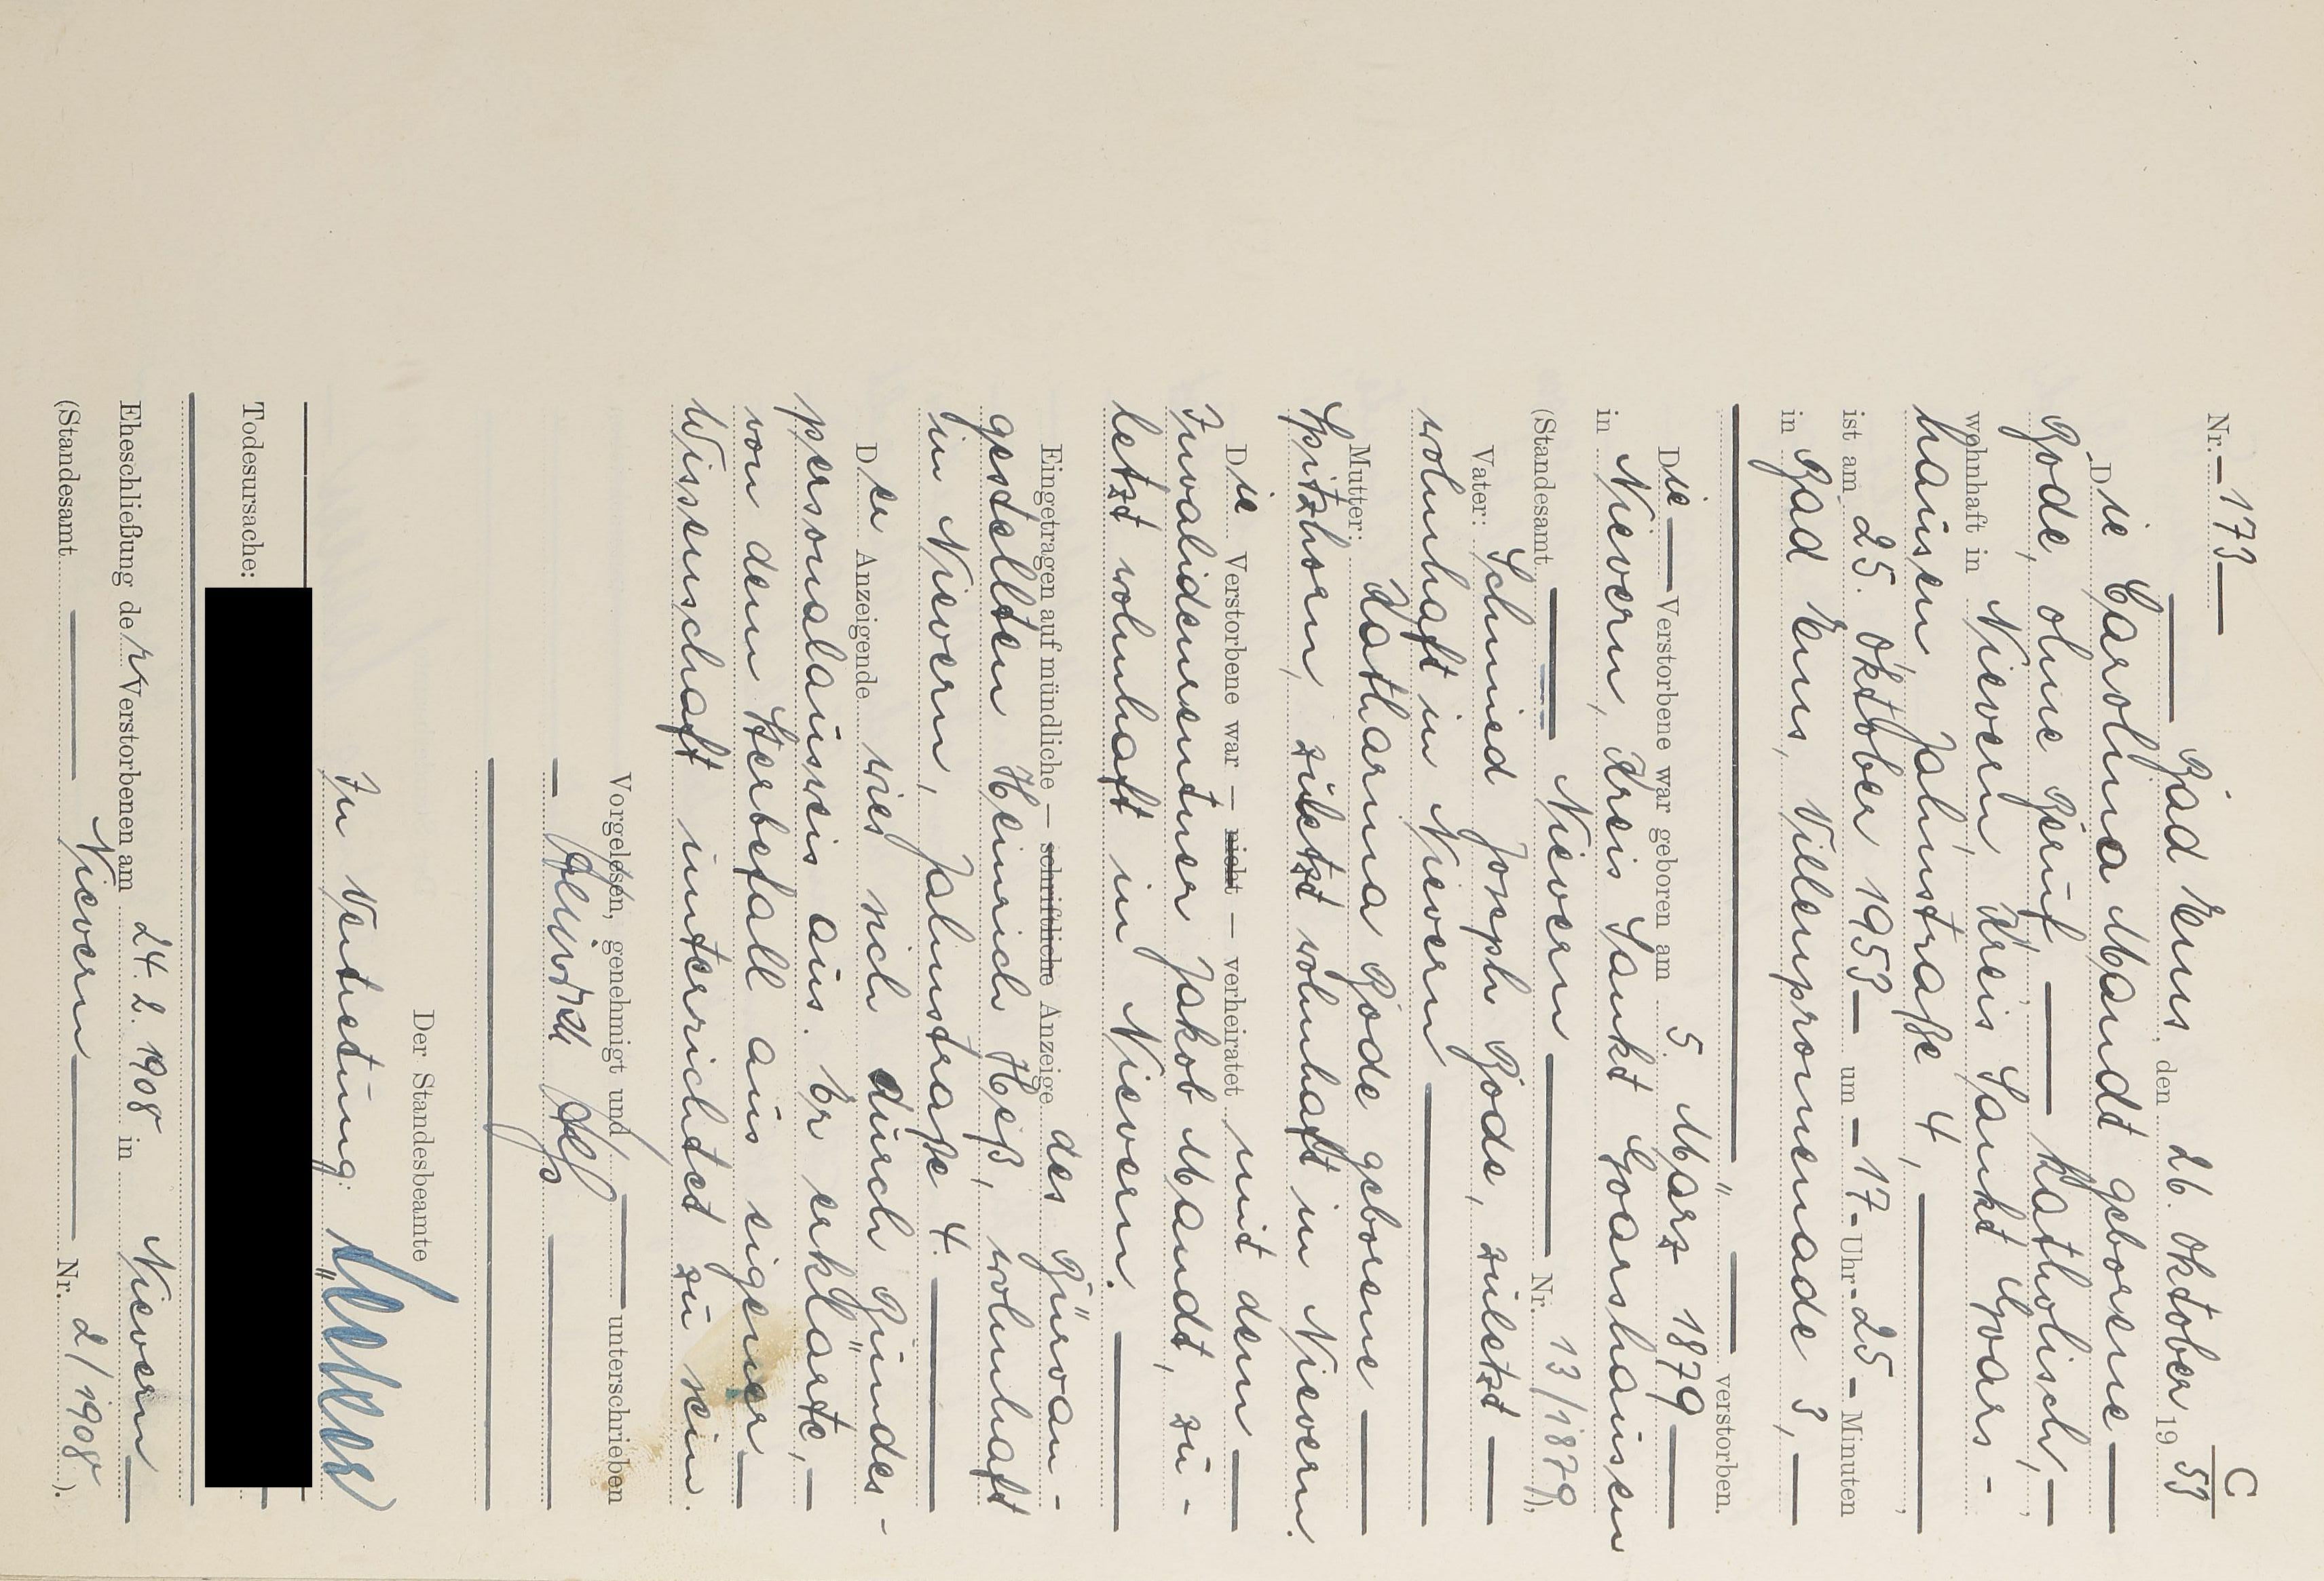 C
Nr. 173
Bad Ems, den 26. Oktober 1953
Die Carolina Maundt geborene
Gode, ohne Beruf — katholisch,
wohnhaft in Nievern, Kreis Sankt Goars-
hausen, Bahnstraße 4,
ist am 25. Oktober 1953 um 17 Uhr 25 Minuten
in Bad Ems, Villenpromenade 3,
verstorben.
Die Verstorbene war geboren am 5. März 1879
in Nievern, Kreis Sankt Goarshausen
(Standesamt Nievern Nr. 13/1879),
Vater: Schmied Joseph Gode, zuletzt
wohnhaft in Nievern
Mutter: Katharina Gode geborene
Spitzhorn, zuletzt wohnhaft in Nievern.
Die Verstorbene war — nicht — verheiratet mit dem
Invalidenrentner Jakob Maundt, zu-
letzt wohnhaft in Nievern.
Eingetragen auf mündliche — schriftliche Anzeige des Büroan-
gestellten Heinrich Heß, wohnhaft
in Nievern, Bahnstraße 4.
Der Anzeigende wies sich durch Bundes-
personalausweis aus. Er erklärte,
von dem Sterbefall aus eigener
Wissenschaft unterrichtet zu sein.
Vorgelesen, genehmigt und unterschrieben
Heinrich Heß
Der Standesbeamte
In Vertretung:
Todesursache:
Eheschließung der Verstorbenen am 24. 2. 1908 in Nievern
(Standesamt Nievern Nr. 2/1908).